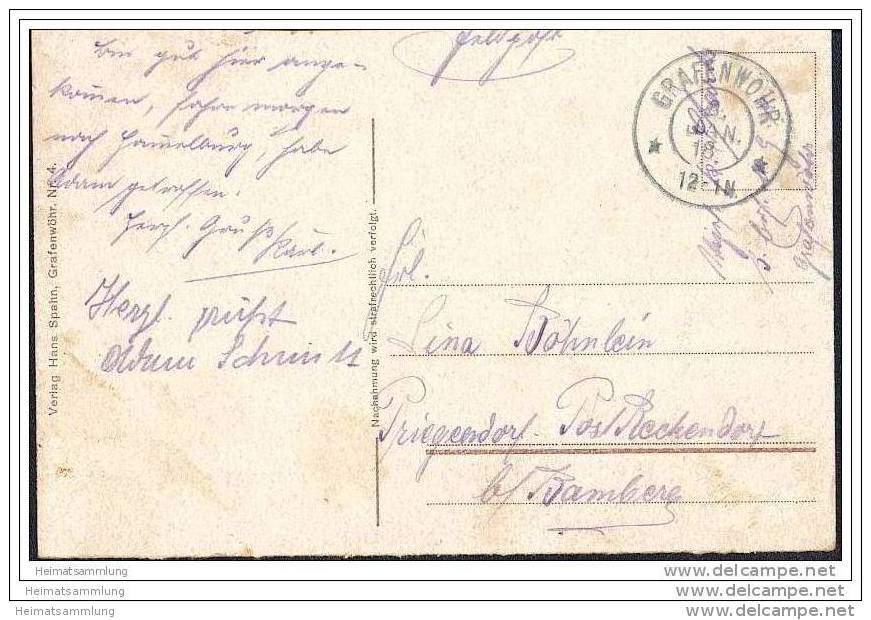 Feldpost
Bin gut hier ange-
kommen, fahre morgen
nach Hammelburg, habe
Adam getroffen.
Herzl. Gruß
Karl.
Herzl. grüßt
Adam Schmitt
Verlag Hans Spahn, Grafenwöhr. Nr. 4.
Nachahmung wird strafrechtlich verfolgt.
GRAFENWÖHR
JAN.
18
12-1N.
Grafenwöhr
Frl.
Lina Böhnlein
Priegendorf Post Reckendorf
b/ Bamberg
Heimatsammlung
Heimatsammlung
Heimatsammlung
www.delcampe.net
www.delcampe.net
www.delcampe.net